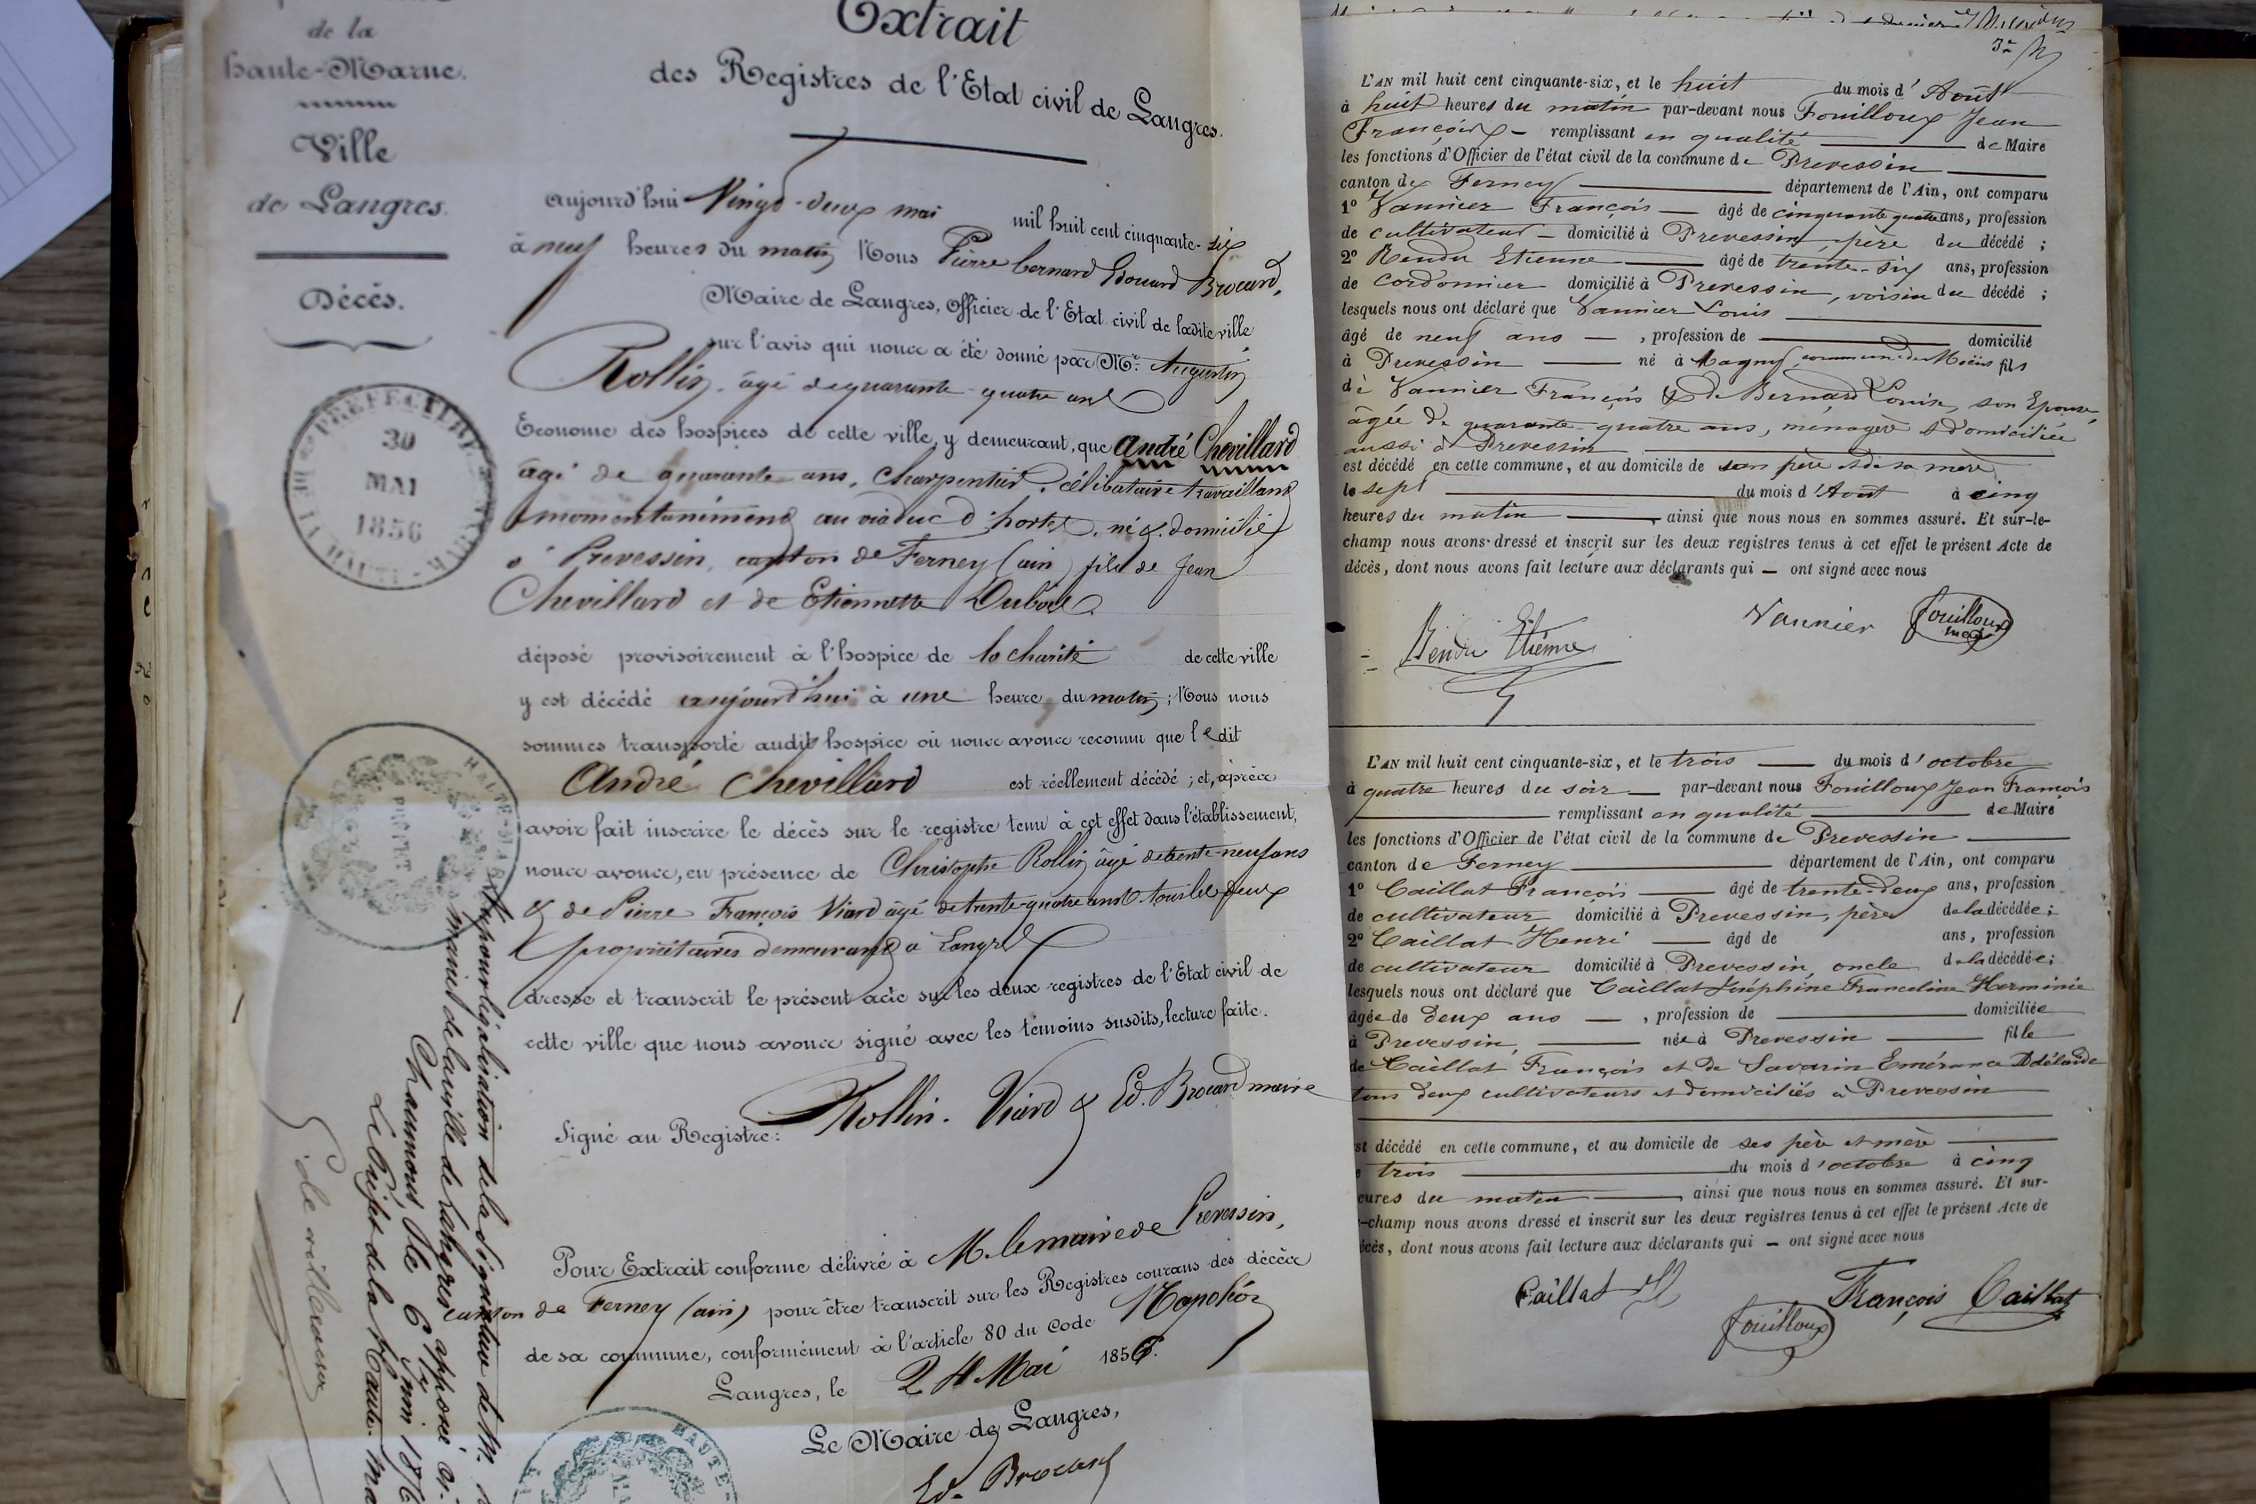 de la
Haute-Marne.
Ville
de Langres.
Décès.
30
MAI
1856
Extrait
des Registres de l'Etat civil de Langres.
aujourd'hui Vingt-deux mai mil huit cent cinquante-six
à neuf heures du matin, Nous Pierre bernard Edouard Brocard,
Maire de Langres, Officier de l'Etat civil de ladite ville
sur l'avis qui nous a été donné par Mr. Augustin
Rollin, âgé de quarante-quatre ans
Econome des hospices de cette ville, y demeurant, que André Chevillard
âgé de quarante ans, charpentier, célibataire travaillant
momentanément au viaduc d'hortes, né & domicilié
à Prevessin, canton de Ferney (ain) fils de Jean
Chevillard et de Etiennette Dubois
déposé provisoirement à l'hospice de la charité de cette ville
y est décédé aujourd'hui à une heure du matin; Nous nous
sommes transporté audit hospice où nous avons reconnu que ledit
André Chevillard est réellement décédé; et, après
avoir fait inscrire le décès sur le registre tenu à cet effet dans l'établissement,
nous avons, en présence de Christophe Rollin âgé de trente-neuf ans
& de Pierre François Viard âgé de trente-quatre ans tous les deux
propriétaires demeurant à Langres
dressé et transcrit le présent acte sur les deux registres de l'Etat civil de
cette ville que nous avons signé avec les témoins susdits, lecture faite.
Signé au Registre: Rollin. Viard & Ed. Brocard maire
Pour Extrait conforme délivré à M. le maire de Prevessin,
canton de Ferney (ain) pour être transcrit sur les Registres courans des décès
de sa commune, conformément à l'article 80 du Code Napoléon
Langres, le 24 Mai 1856.
Le Maire de Langres,
Ed. Brocard
Vu pour légalisation de la Signature de M.
maire de la ville de Langres apposée ci-
Chaumont, le 6 Juin 1856
Le Préfet de la Haute-Ma
HAUTE-MAR
HAUTE-
3e
L'AN mil huit cent cinquante-six, et le huit du mois d'Août
à huit heures du matin par-devant nous Fouilloux Jean
François remplissant en qualité de Maire
les fonctions d'Officier de l'état civil de la commune de Prevessin
canton de Ferney département de l'Ain, ont comparu
1° Vannier François âgé de cinquante quatre ans, profession
de cultivateur domicilié à Prevessin, père du décédé;
2° Rendu Etienne âgé de trente-six ans, profession
de cordonnier domicilié à Prevessin, voisin du décédé;
lesquels nous ont déclaré que Vannier Louis
âgé de neuf ans, profession de domicilié
à Prevessin né à Magny, commune de Moëns fils
de Vannier François & de Bernard Louise, son Epouse,
âgée de quarante-quatre ans, ménagère & domiciliée
aussi à Prevessin
est décédé en cette commune, et au domicile de son père et de sa mère
le sept du mois d'Août à cinq
heures du matin, ainsi que nous nous en sommes assuré. Et sur-le-
champ nous avons dressé et inscrit sur les deux registres tenus à cet effet le présent Acte de
décès, dont nous avons fait lecture aux déclarants qui ont signé avec nous
Rendu Etienne Vannier fouilloux
L'AN mil huit cent cinquante-six, et le trois du mois d'octobre
à quatre heures du soir par-devant nous Fouilloux Jean François
remplissant en qualité de Maire
les fonctions d'Officier de l'état civil de la commune de Prevessin
canton de Ferney département de l'Ain, ont comparu
1° Caillat François âgé de trente-deux ans, profession
de cultivateur domicilié à Prevessin, père de la décédée;
2° Caillat Henri âgé de ans, profession
de cultivateur domicilié à Prevessin, oncle de la décédée;
lesquels nous ont déclaré que Caillat Joséphine Franceline Herminie
âgée de deux ans, profession de domiciliée
à Prevessin, née à Prevessin fille
de Caillat François et de Savarin Emérance Adélaïde
tous deux cultivateurs et domiciliés à Prevessin
st décédé en cette commune, et au domicile de ses père et mère
trois du mois d'octobre à cinq
eures du matin, ainsi que nous nous en sommes assuré. Et sur-
-champ nous avons dressé et inscrit sur les deux registres tenus à cet effet le présent Acte de
écès, dont nous avons fait lecture aux déclarants qui ont signé avec nous
Caillat H François Caillat
fouilloux